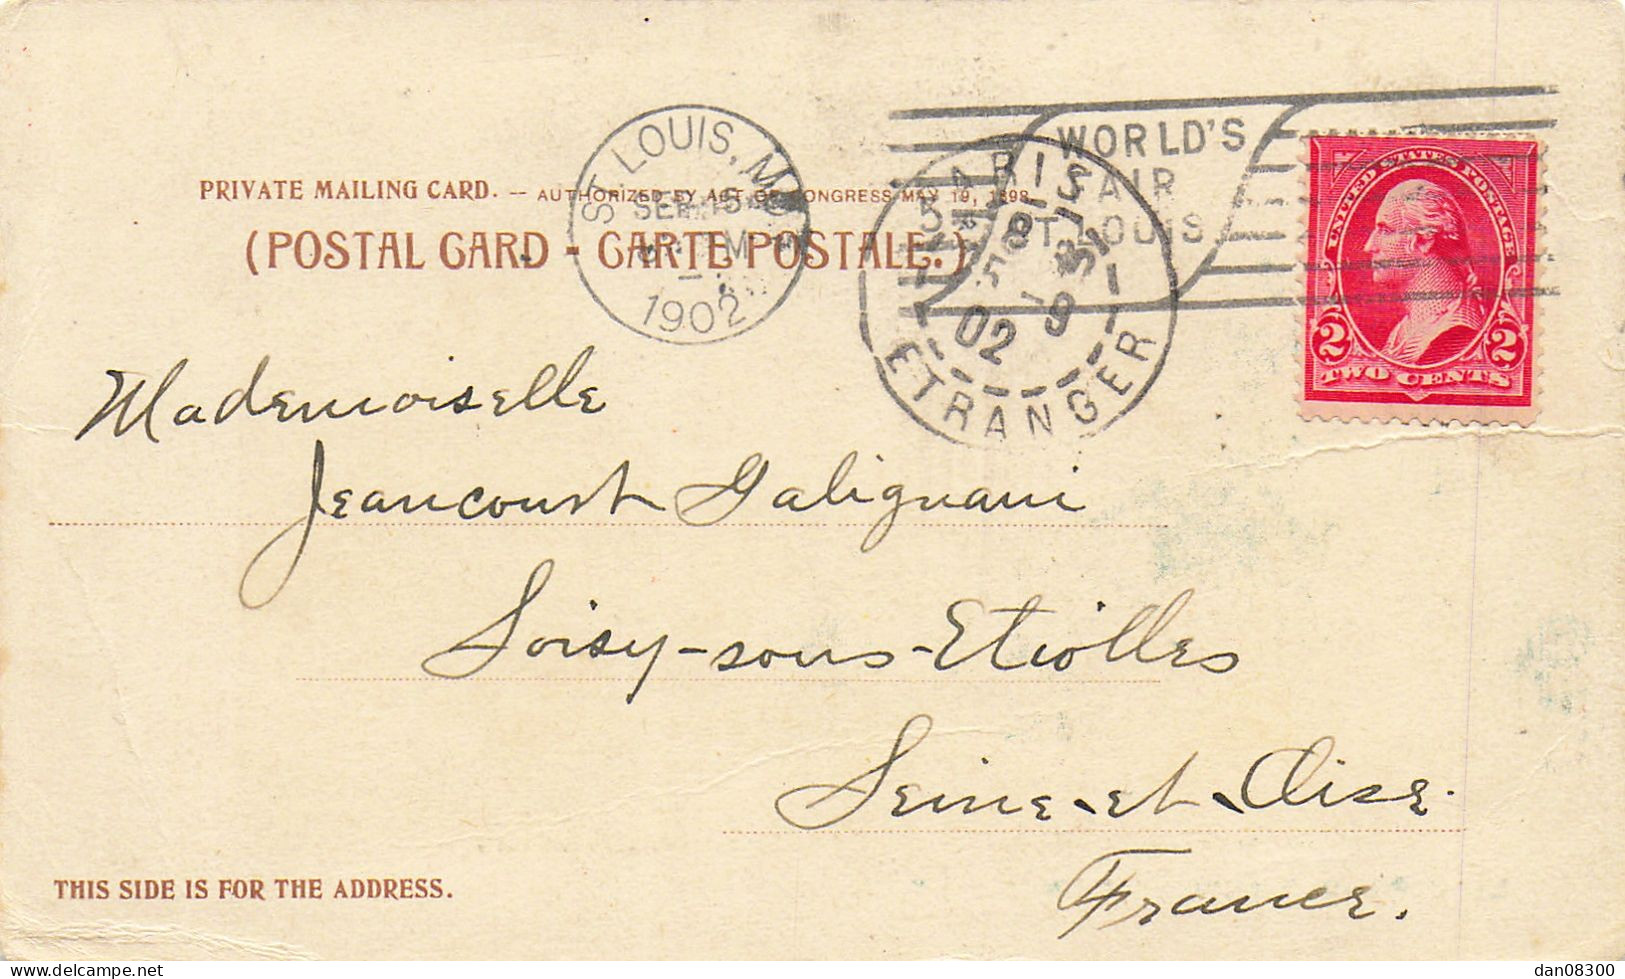 WORLD'S
FAIR
ST. LOUIS
ST. LOUIS, MO.
SEP 15
1902
PARIS
ETRANGER
02
9
UNITED STATES POSTAGE
2 2
TWO CENTS
PRIVATE MAILING CARD. -- AUTHORIZED BY ACT OF CONGRESS MAY 19, 1898.
(POSTAL CARD - CARTE POSTALE.)
Mademoiselle
Jeancourt Galignani
Soisy-sous-Etiolles
Seine-et-Oise.
France.
THIS SIDE IS FOR THE ADDRESS.
delcampe.net
dan08300